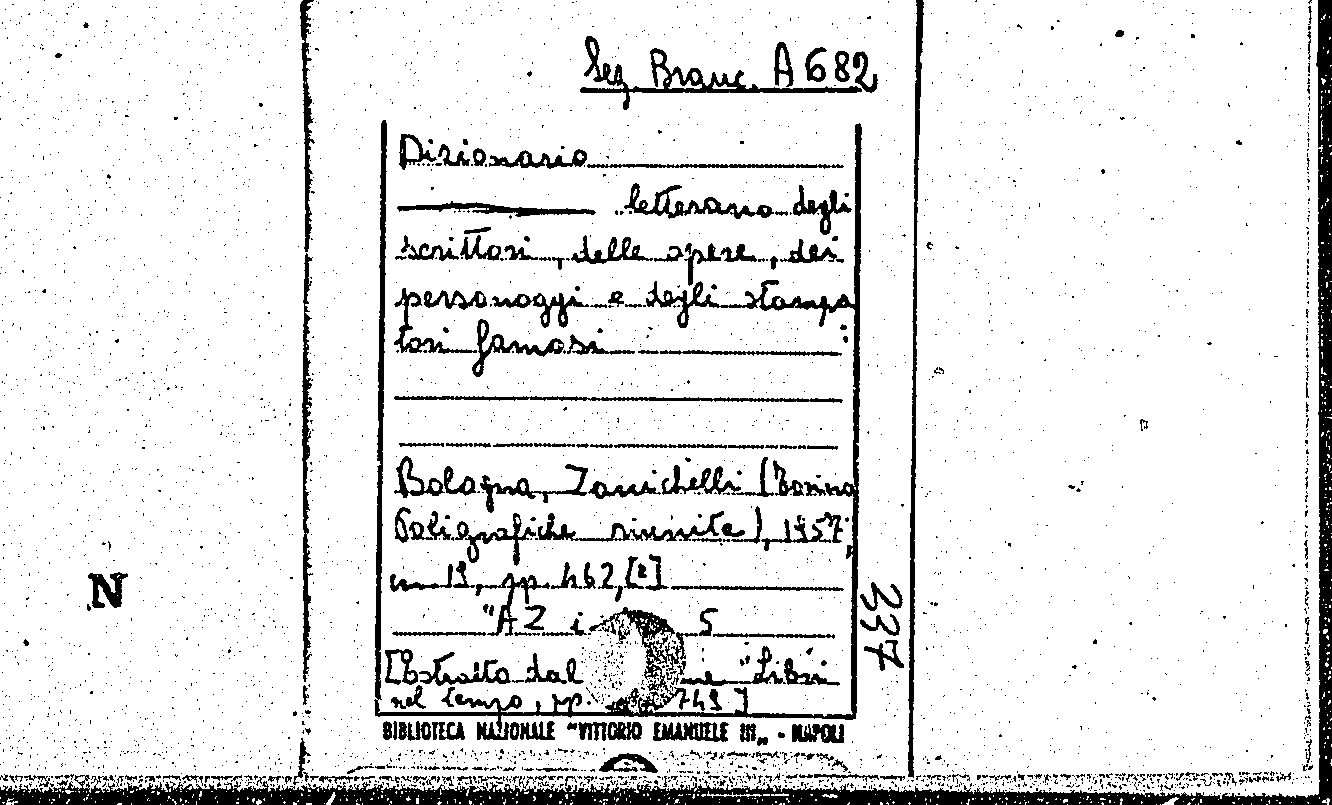 Sez. Branc. A 682
Dizionario
letterario degli
scrittori, delle opere, dei
personaggi e degli stampa
tori famosi
Bologna, Zanichelli (Torino
Poligrafiche riunite), 1957,
cm 19, pp. 462, [2]
"AZ 5
[Estratto dal "Libri
nel tempo, pp. 749]
337
N
BIBLIOTECA NAZIONALE "VITTORIO EMANUELE III„ - NAPOLI